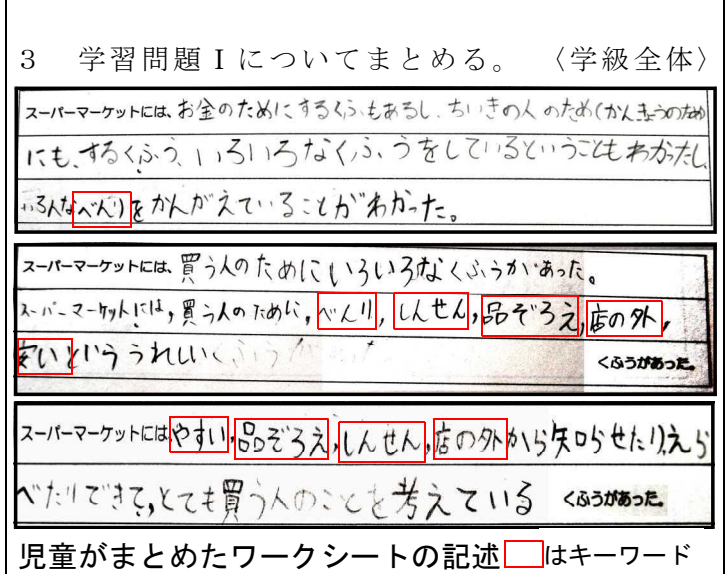 3　学習問題Ⅰについてまとめる。　〈学級全体〉
スーパーマーケットには、お金のためにするくふうもあるし、ちいきの人のため(かんきょうのため)
にも、するくふう、いろいろなくふうをしているということもわかったし、
いろんなべんりをかんがえていることがわかった。
スーパーマーケットには、買う人のためにいろいろなくふうがあった。
スーパーマーケットには，買う人のために，べんり，しんせん，品ぞろえ，店の外，
安いといううれしいくふうが くふうがあった。
スーパーマーケットにはやすい，品ぞろえ，しんせん，店の外から知らせたり，えら
べたりできて，とても買う人のことを考えている くふうがあった。
児童がまとめたワークシートの記述 はキーワード